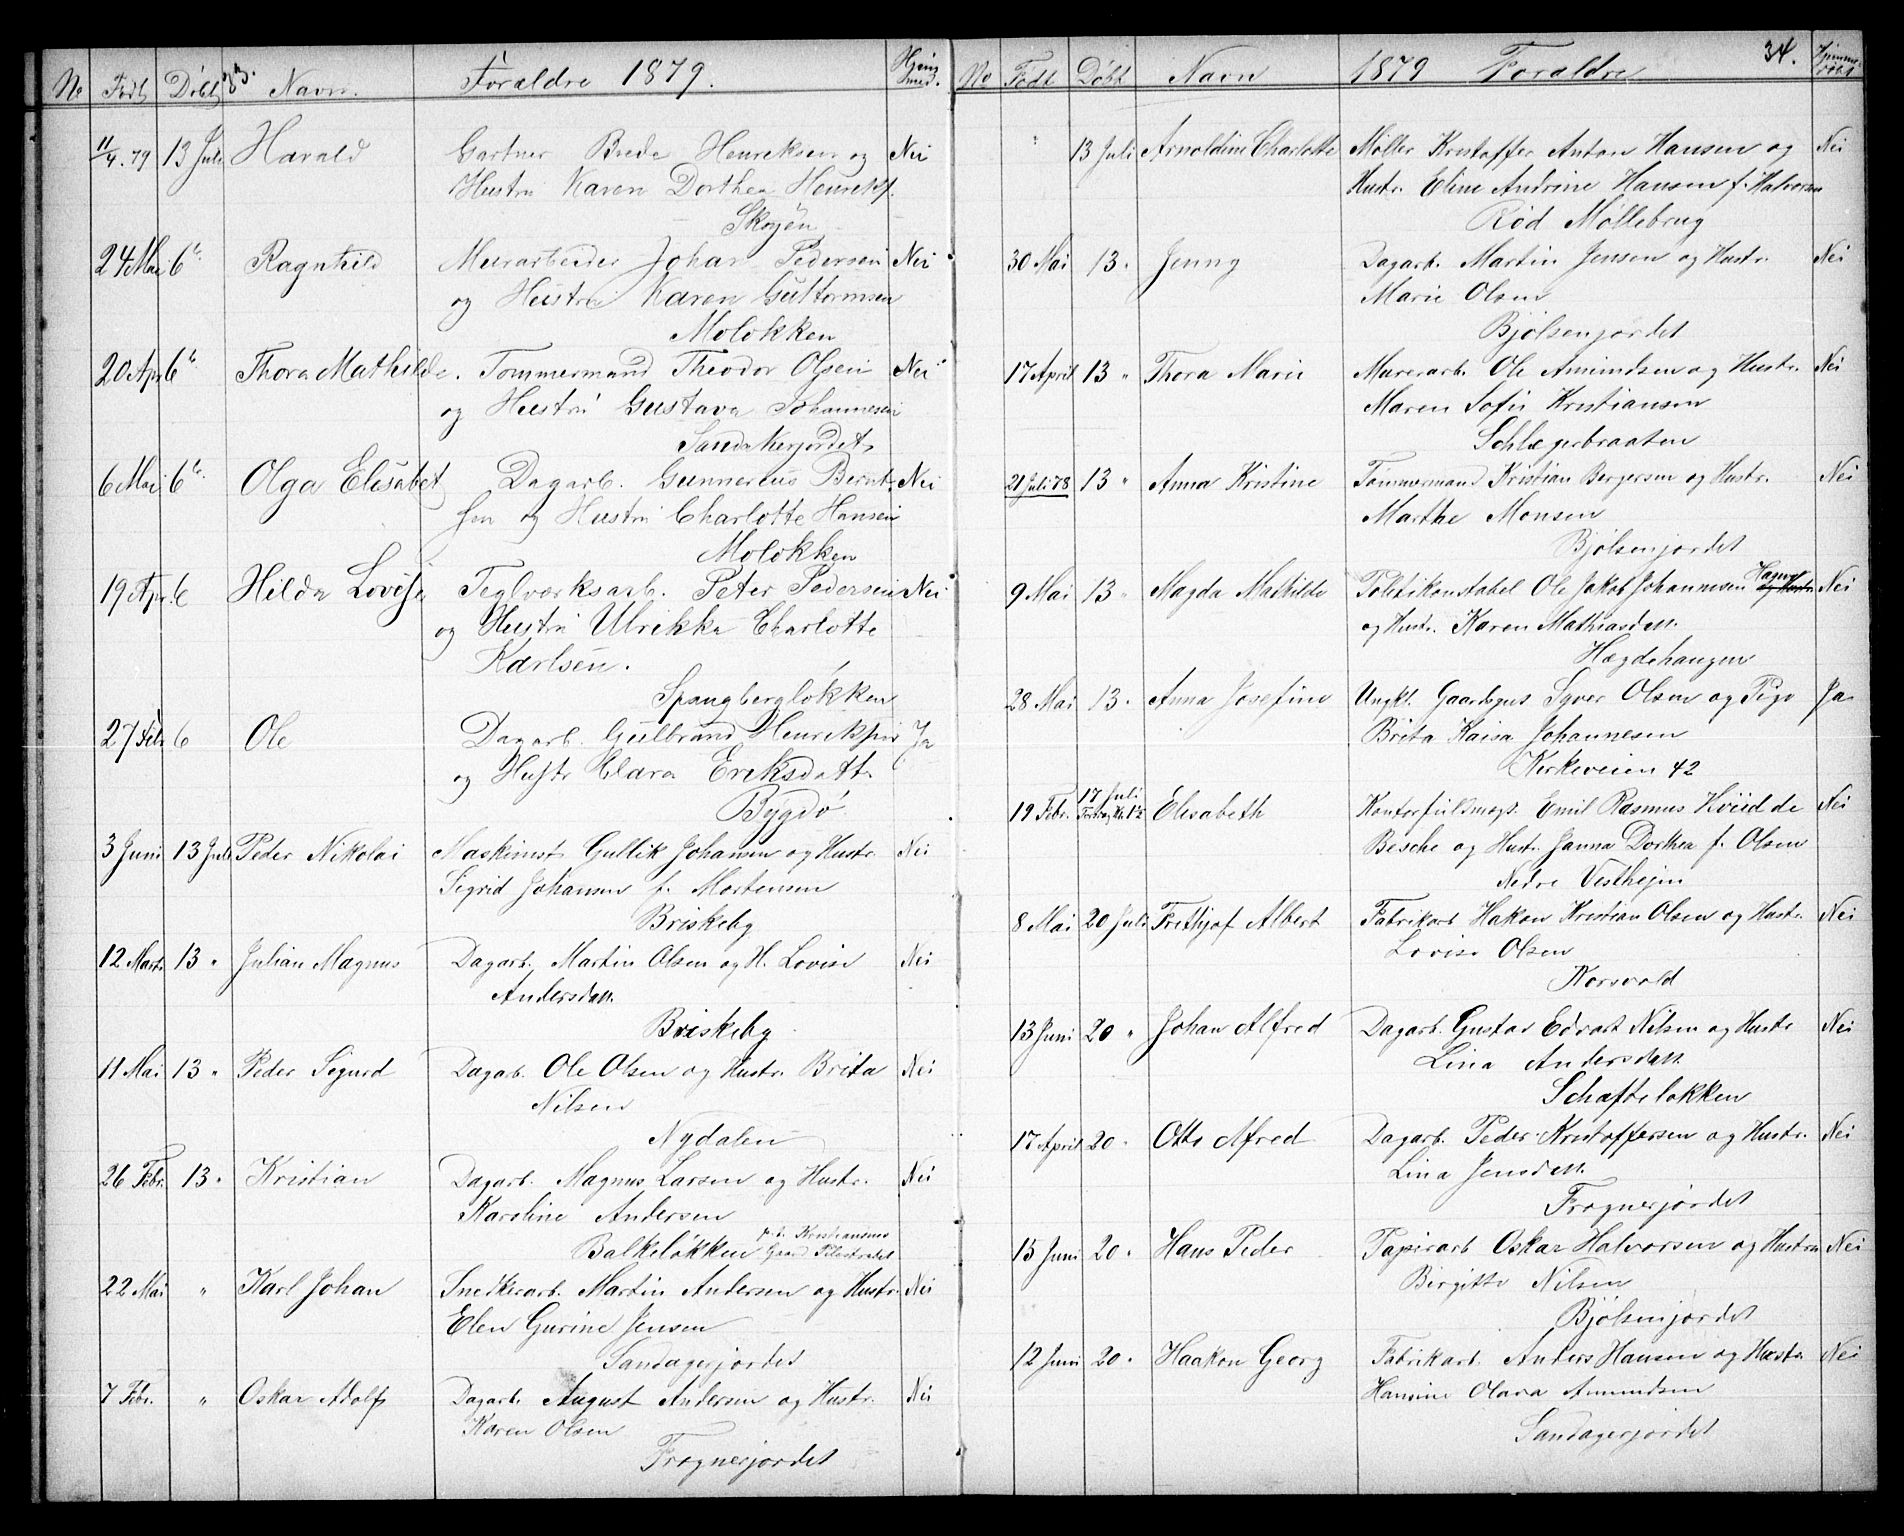 No Födt Döbt 33. Navn. Foraldre 1879. Hjem med.
11/4.79 13 Juli Harald Gartner Brede Henriksen og Nei
Hustru Karen Dorthea Henriks.
Skøyen
24 Mai 6te Ragnhild Murarbeider Johan Pedersen Nei
og Hustru Karen Guttormsen
Moløkken
20 Apr 6te Thora Mathilde. Tømmermand Theodor Olsen Nei
og Hustru Gustava Johannesen
Sandakerjordet
6 Mai 6te Olga Elisabet Dagarb. Gunnerius Bernt- Nei
sen og Hustru Charlotte Hansen
Moløkken
19 Apr. 6 Hilda Lovise Teglværksarb. Peter Pedersen Nei
og Hustru Ulrikka Charlotte
Karlsen.
Spangbergløkken
27 Feb 6 Ole Dagarb. Gulbrand Henriksen Ja
og Hustr Clara Eriksdatt.
Bygdø
3 Juni 13 Juli Peder Nikolai Maskinist Gullik Johansen og Hustr. Nei
Sigrid Johansen f. Mortensen
Briskeby
12 Marts 13 " Julian Magnus Dagarb. Martin Olsen og H. Lovise Nei
Andersdatt.
Briskeby
11 Mai 13 " Peder Sigurd Dagarb. Ole Olsen og Hustr. Brita Nei
Nilsen
Nydalen
26 Febr. 13 " Kristian Dagarb. Magnus Larsen og Hustr. Nei
Karoline Andersen
Balkeløkken Kristiansens Gaard Pilestrædet
22 Mai " Karl Johan Snedkerarb. Martin Andersen og Hustr. Nei
Elen Gurine Jensen
Sandagerjordet
7 Febr. " Oskar Adolf Dagarb. August Andersen og Hustr. Nei
Karen Olsen
Frognerjordet
No Födt Döbt Navn 1879 Foraldre 34. Hjemme
" 13 Juli Arnoldine Charlotte Møller Kristoffer Anton Hansen og Nei
Hustr. Eline Andrine Hansen f. Halvorsen
Rød Møllebrug
30 Mai 13 " Jenny Dagarb. Martin Jensen og Hustr. Nei
Marie Olsen
Bjølsenjordet
17 April 13 " Thora Marie Murerarb. Ole Amundsen og Hustr. Nei
Maren Sofie Kristiansen
Schlægerbraaten
21 Juli 78 13 " Anna Kristine Tømmermand Kristian Bergersen og Hustr. Nei
Marthe Monsen
Bjølsenjordet
9 Mai 13 " Magda Mathilde Politikonstabel Ole Jakob Johannesen Nei
og Hustr. Karen Mathiasdatt.
Hægdehaugen
28 Mai 13 " Anna Josefine Ungkl. Gaardsgut Syver Olsen og Pige Ja
Brita Kaisa Johannesen
Kirkeveien 42
19 Febr. 17 Juli Torsdag Kl. 12 Elisabeth Kontorfuldmægt. Emil Rasmus Hviid de Nei
Besche og Hust. Janna Dorthea f. Olsen
Nedre Vestheim
8 Mai 20 Juli Frithjof Albert Fabrikarb. Hakon Kristian Olsen og Hustr. Nei
Lovise Olsen
Korsvold
13 Juni 20 " Johan Alfred Dagarb. Gustav Edvart Nilsen og Hustr Nei
Lina Andersdatt.
Schafteløkken
17 April 20 " Otto Alfred Dagarb. Peder Kristoffersen og Hustr. Nei
Lina Jensdatt.
Frognerjordet
15 Juni 20 " Hans Peder Papirarb Oskar Halvorsen og Hustru Nei
Birgitte Nilsen
Bjølsenjordet
12 Juni 20 " Haakon Georg Fabrikarb. Anders Hansen og Hustr. Nei
Hansine Olava Amundsen
Sandagerjordet